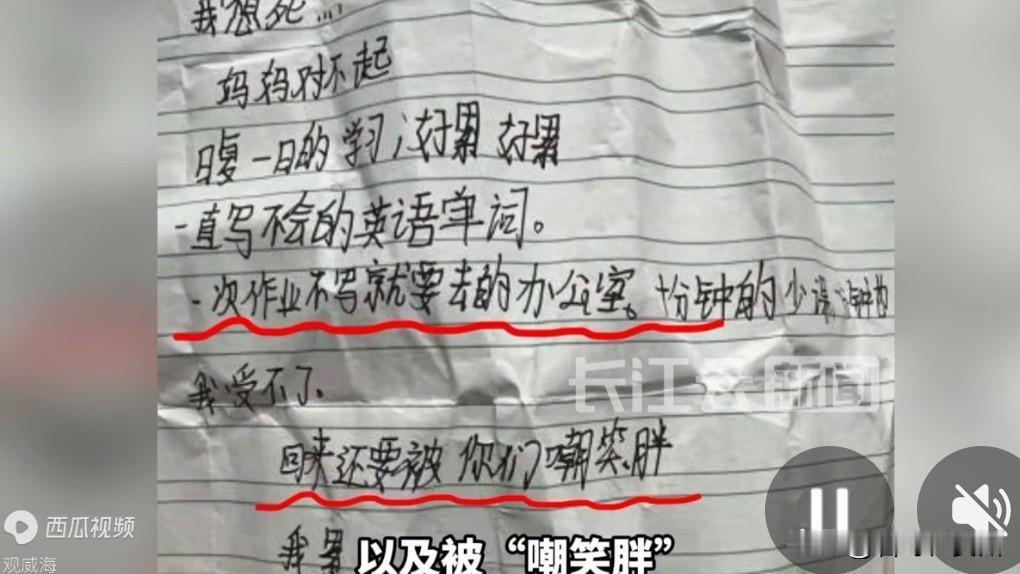 我想死....
妈妈对不起
日复一日的学习，好累 好累
一直写不会的英语单词。
一次作业不写就要去的办公室。十分钟的少
我受不了、
回来还要被你们嘲笑胖
我累
以及被“嘲笑胖”
长江云新闻
西瓜视频
观威海